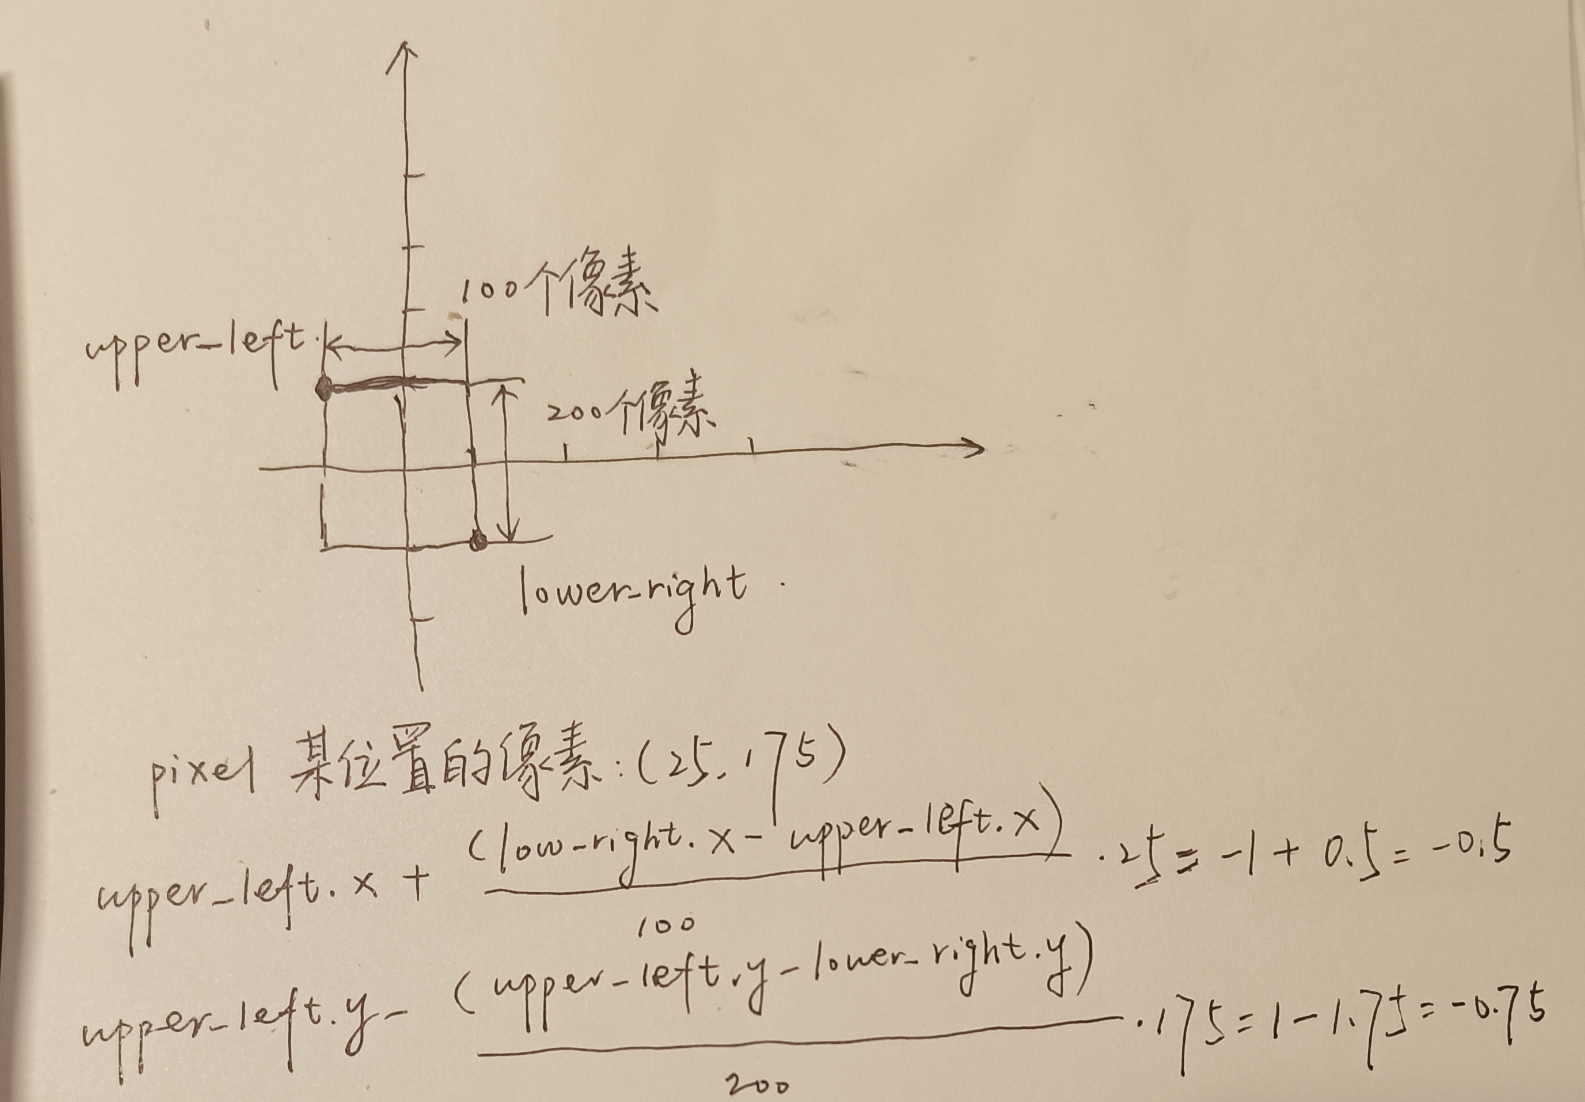 100个像素
upper_left.
200个像素
lower_right.
pixel 某位置的像素:(25,175)
upper_left.x + (low_right.x - upper_left.x) / 100 · 25 = -1 + 0.5 = -0.5
upper_left.y - (upper_left.y - lower_right.y) / 200 · 175 = 1 - 1.75 = -0.75